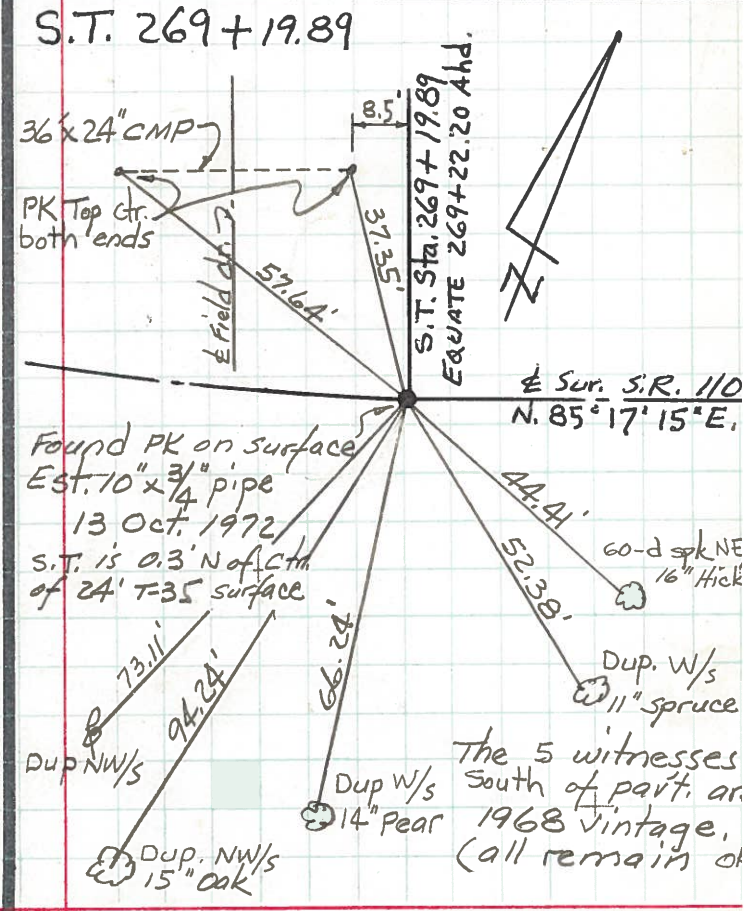 S.T. 269+19.89
8.5'
36"x24" CMP
PK Top Ctr.
both ends
℄ Field dr.
57.64'
37.35'
S.T. Sta. 269+19.89
EQUATE 269+22.20 Ahd.
N
℄ Sur. S.R. 110
N. 85° 17' 15" E.
Found PK on surface
Est. 10" x 3/4" pipe
13 Oct. 1972
S.T. is 0.3' N of Ctr.
of 24' T-35 surface
44.41'
60-d spk NE
16" Hick
52.38'
Dup. W/s
11" spruce
66.24'
73.11'
94.24'
Dup NW/s
Dup W/s
14" Pear
Dup. NW/s
15" Oak
The 5 witnesses
South of pav't. ar
1968 vintage,
(all remain ok